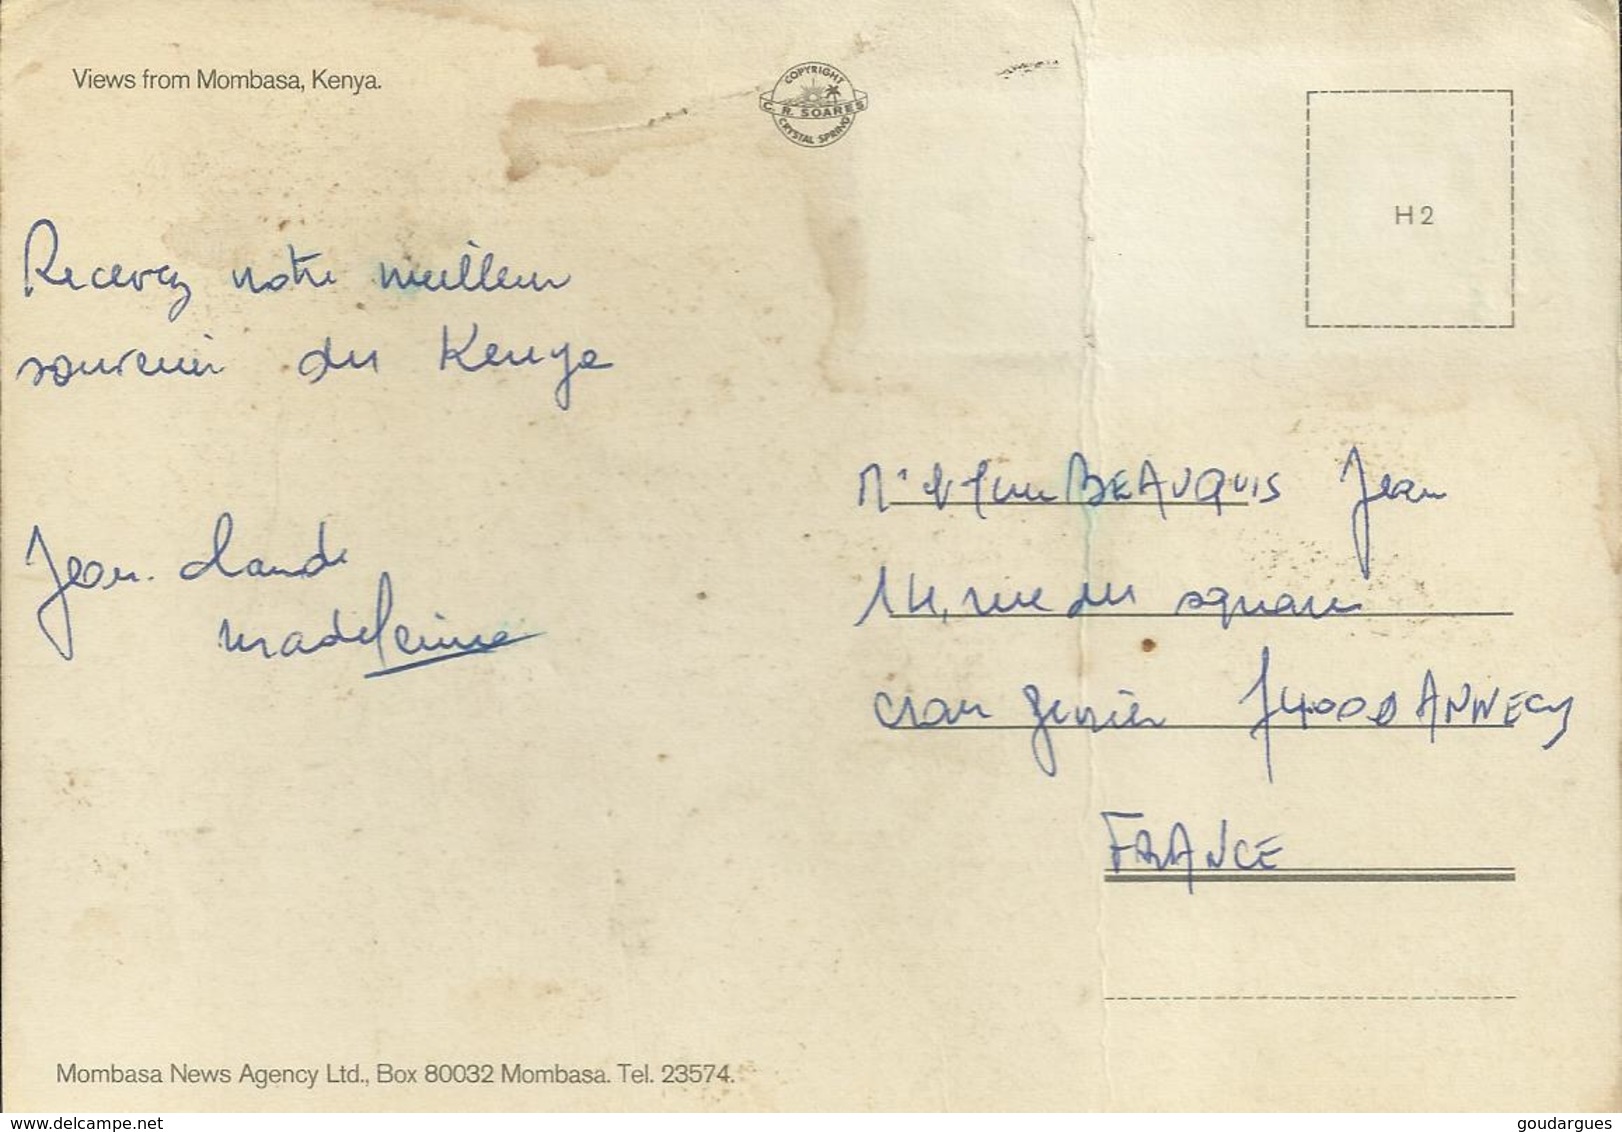 Views from Mombasa, Kenya.
COPYRIGHT
C. R. SOARES
CRYSTAL SPRING
H2
Recevez notre meilleur
souvenir du Kenya
Jean. Claude
Madeleine
Mr et Mme BEAUQUIS Jean
14, rue du square
cran gevrier 74000 ANNECY
FRANCE
Mombasa News Agency Ltd., Box 80032 Mombasa. Tel. 23574.
www.delcampe.net
goudargues